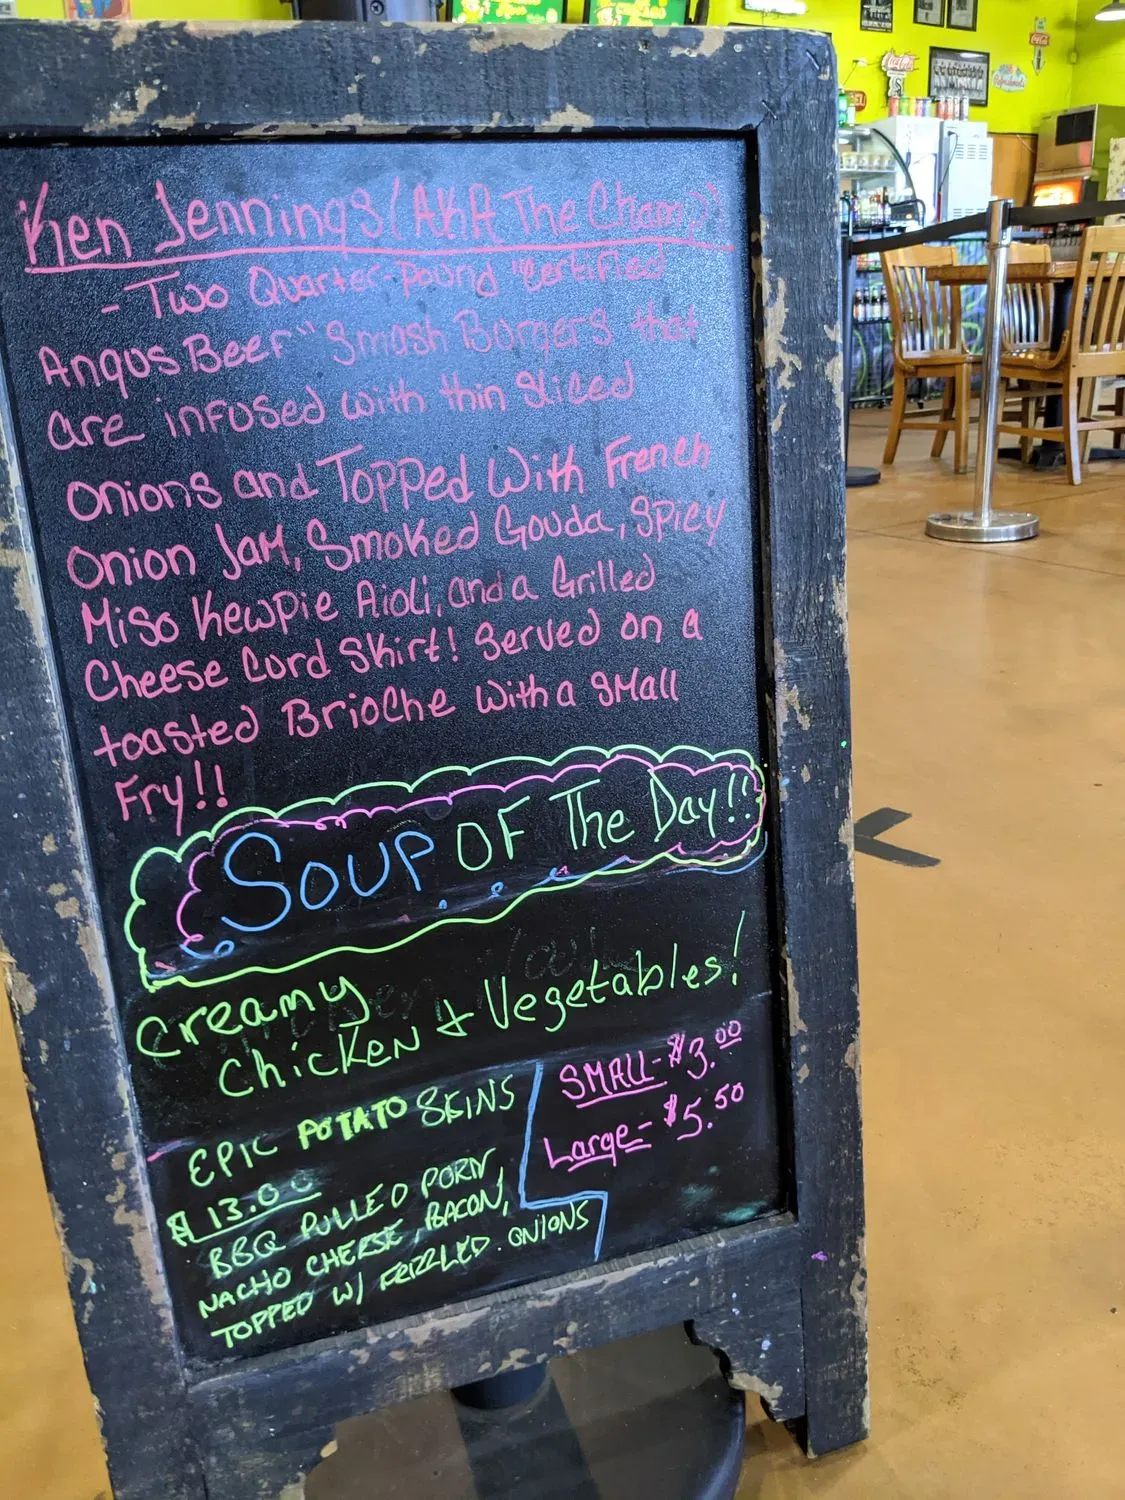 Ken Jennings (AKA The Champ)"
- Two Quarter-pound "Certified
Angus Beef" Smash Burgers that
are infused with thin sliced
onions and Topped With French
Onion Jam, Smoked Gouda, Spicy
Miso Kewpie Aioli, and a Grilled
Cheese Curd Skirt! Served on a
toasted Brioche with a small
Fry!!
Soup Of The Day!!
Creamy
Chicken & Vegetables!
SMALL-$3.00
Large-$5.50
EPIC POTATO SKINS
$13.00
BBQ PULLED PORK
NACHO CHEESE, BACON,
TOPPED W/ FRIZZLED ONIONS
Coca-Cola